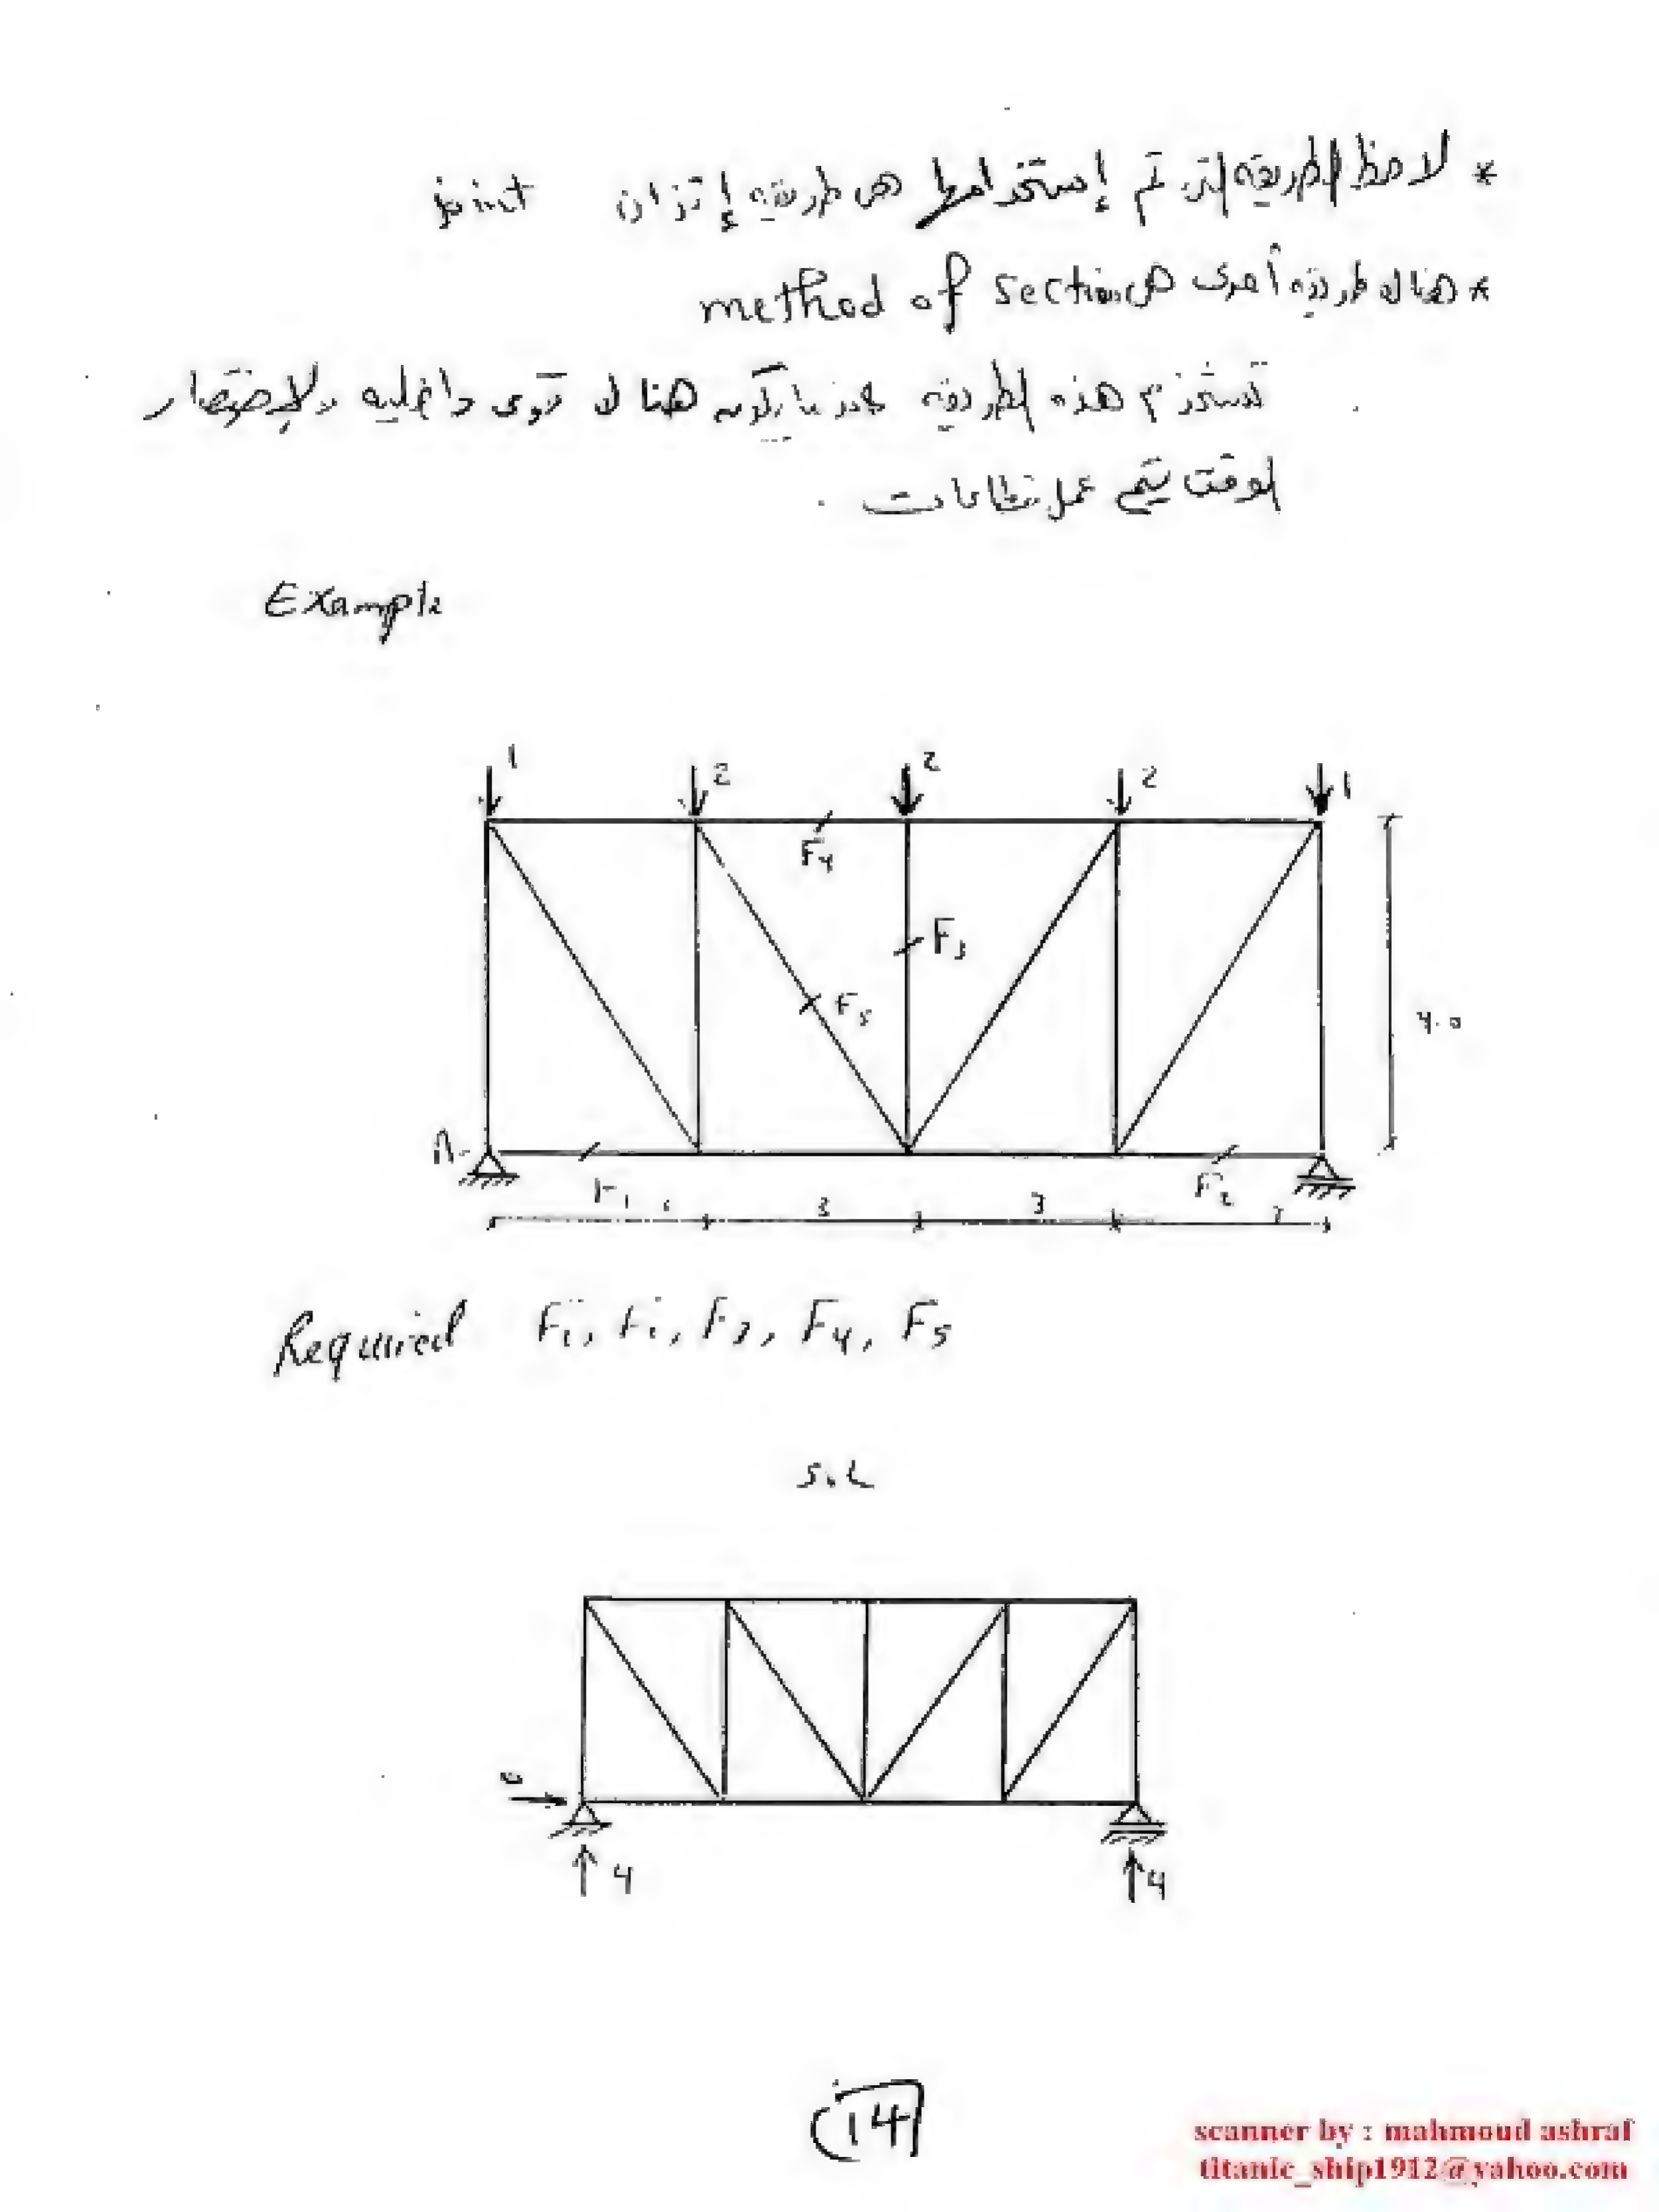 * لاحظ الطريقة التى تم إستخدامها هى طريقة إتزان joint
* هناك طريقة أخرى هى method of section
تستخدم هذه الطريقة عندما يكون هناك قوى داخليه ولإختصار
الوقت يتم عمل قطاعات .
Example
1 2 2 2 1
F4
F3
F5
4.0
A
F1 F2
3 3 3
Required F1, F2, F3, F4, F5
Sol
0
4 4
14
scanner by : mahmoud ashraf
titanic_ship1912@yahoo.com